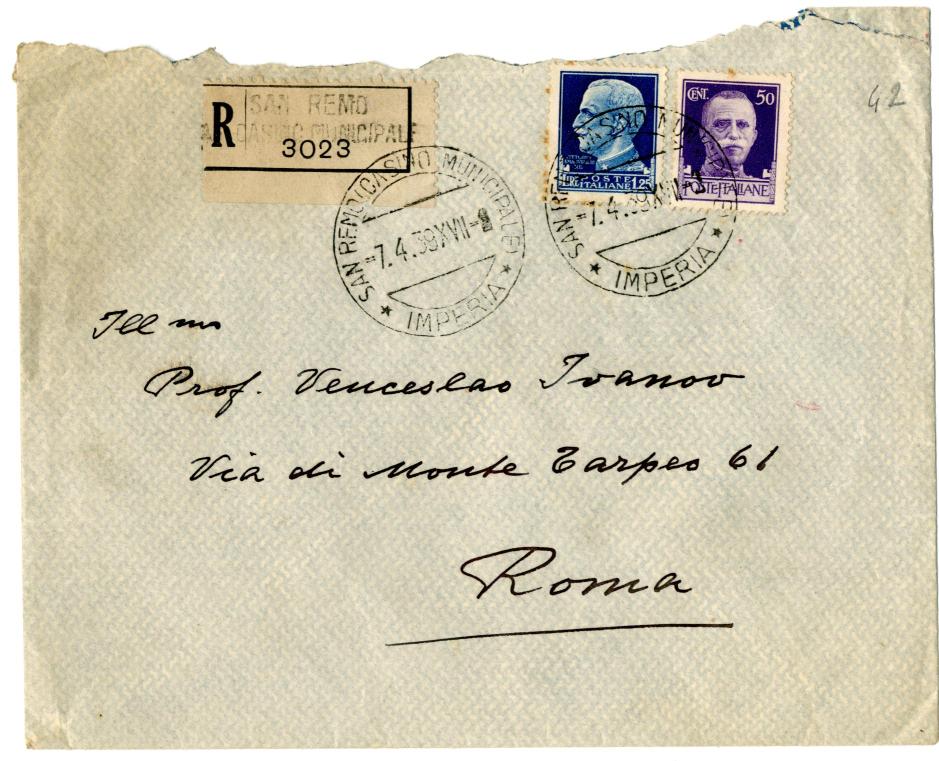 42
R
SAN REMO
CASINO MUNICIPALE
3023
SAN REMO (CASINO MUNICIPALE)
-7.4.39 XVII-
★ IMPERIA ★
POSTE
LIRE ITALIANE 1.25
CENT. 50
POSTE ITALIANE
SAN REMO (CASINO MUNICIPALE)
-7.4.39 XVII
★ IMPERIA ★
Ill mo
Prof. Venceslao Ivanov
Via di Monte Tarpeo 61
Roma